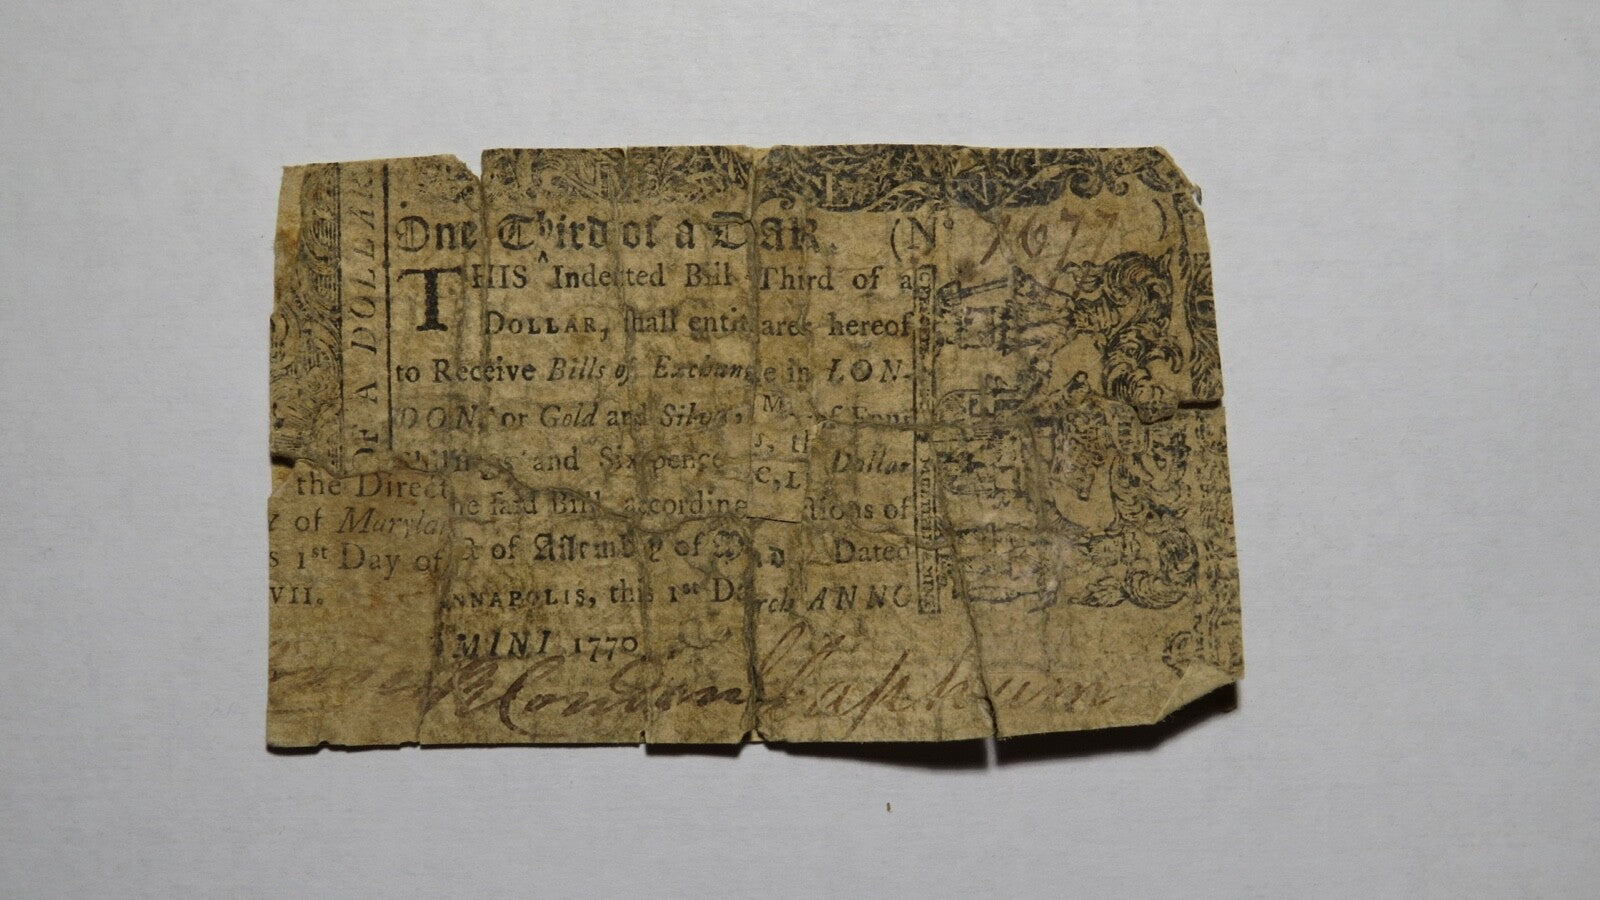 L A N
OF A DOLLAR
One Third of a DAR. (No 1677)
THIS Indented Bill Third of a
DOLLAR, shall entit ares hereof
to Receive Bills of Exchange in LON-
DON, or Gold and Silver, M of
and Sixpence s, th Dollar
the Direct he said Bill, according e, L tions of
of Marylan of Assembly of d Dated
s 1st Day of NNAPOLIS, this 1st Da rch ANNO
VII.
MINI 1770
Couden Clapham